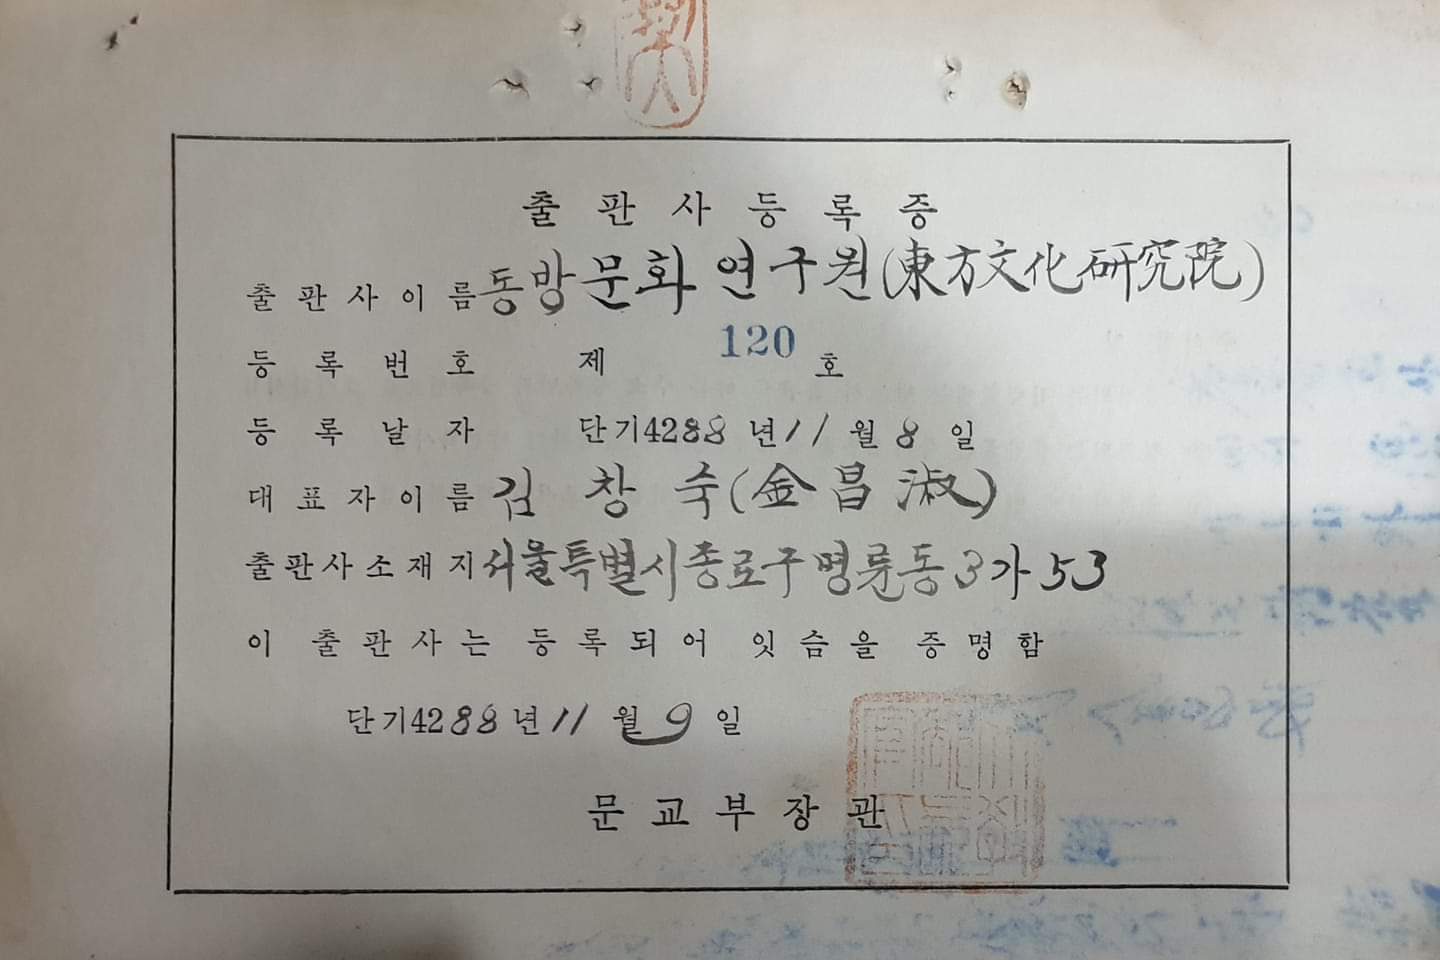 출판사등록증
출판사이름 동방문화연구원(東方文化硏究院)
등록번호 제 120 호
등록날자 단기4288년 11월 8일
대표자이름 김창숙(金昌淑)
출판사소재지 서울특별시종로구명륜동3가53
이 출판사는 등록되어 잇슴을 증명함
단기4288년 11월 9일
문교부장관